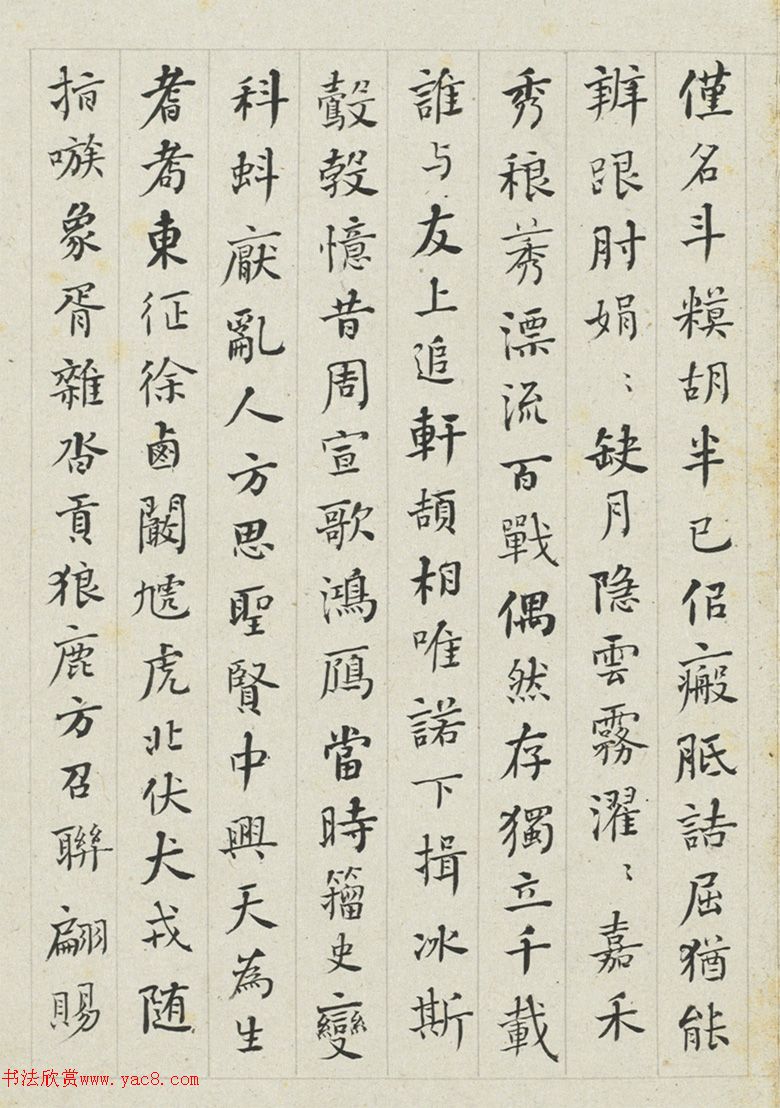 僅名斗糢胡半已佀瘢胝詰屈猶能
辨跟肘娟〻缺月隐雲霧濯〻嘉禾
秀稂莠漂流百戰偶然存獨立千載
誰与友上追軒頡相唯諾下揖冰斯
鷇㝅憶昔周宣歌鴻鴈當時籀史變
科蚪厭亂人方思聖賢中興天為生
耆耇東征徐鹵闞虓虎北伏犬戎随
指嗾象胥雜沓貢狼鹿方召聯翩賜
书法欣赏www.yac8.com